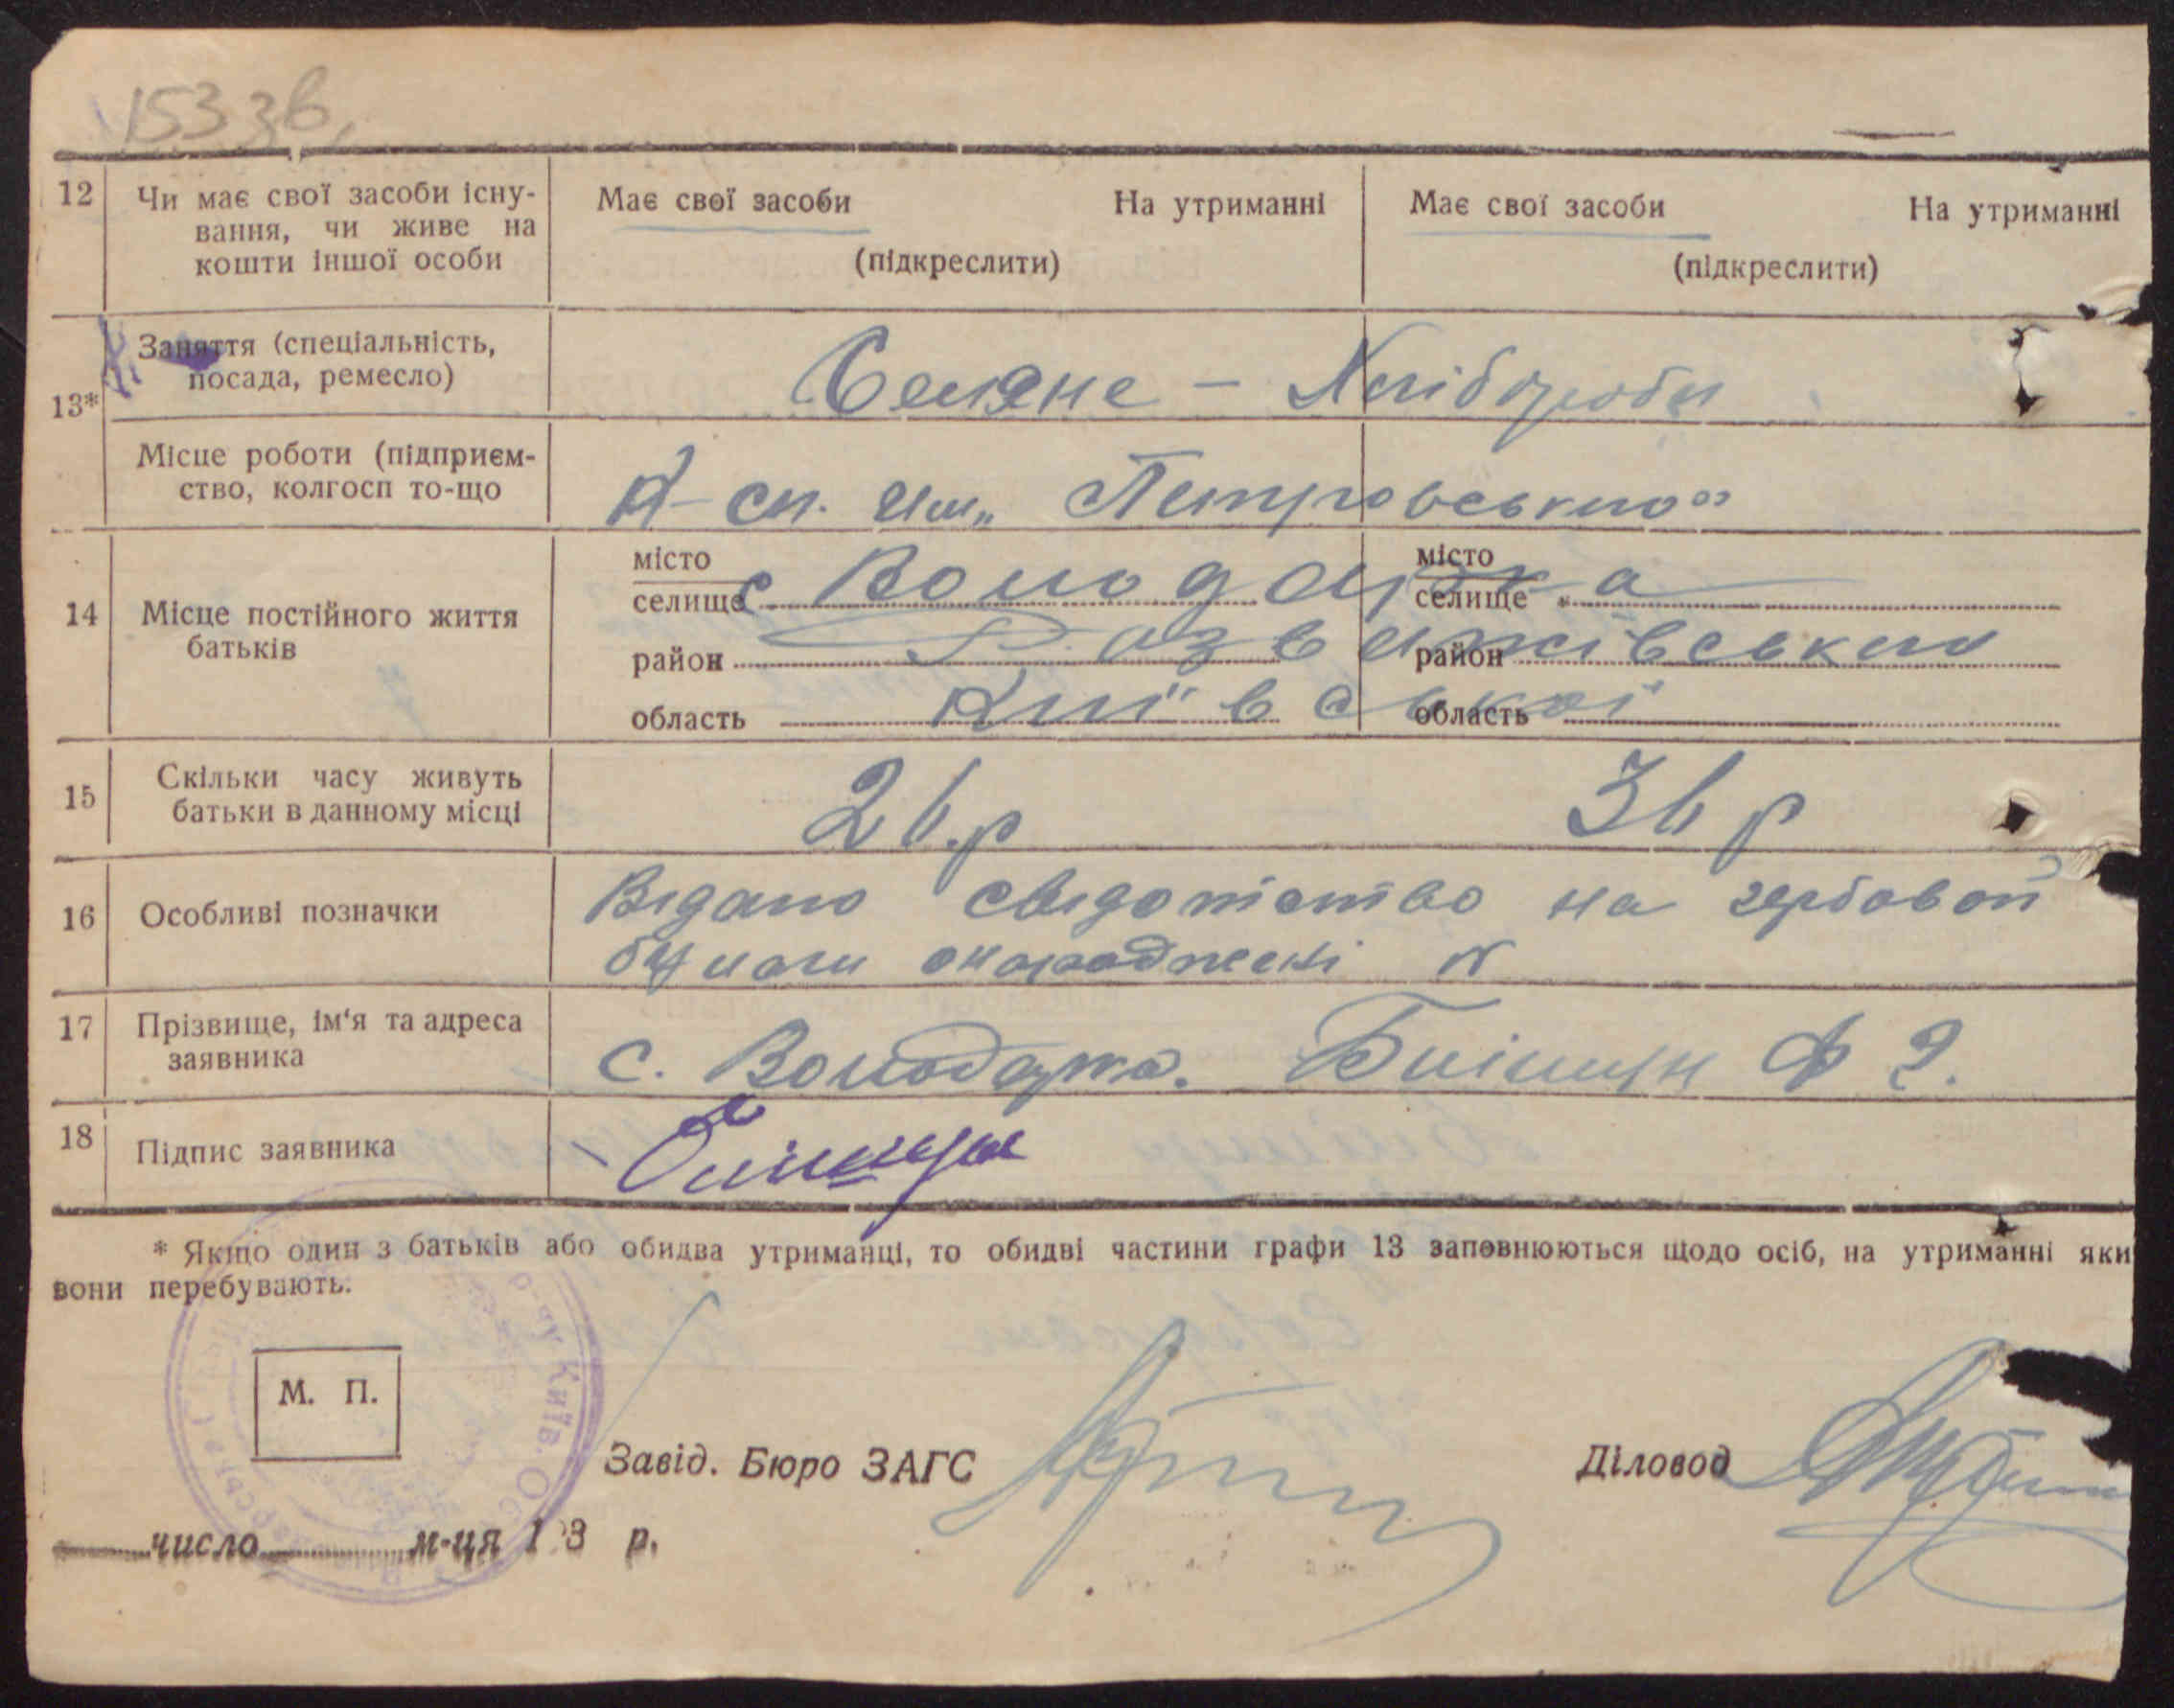 15336,
12 Чи має свої засоби існу-
вання, чи живе на
кошти іншої особи
Має свої засоби На утриманні
(підкреслити)
Має свої засоби На утриманні
(підкреслити)
13* Заняття (спеціальність,
посада, ремесло)
Селяне - Хлібороби
Місце роботи (підприєм-
ство, колгосп то-що
К-сп. им „Петровського"
14 Місце постійного життя
батьків
місто
селище с Володарка
район Розважівського
область Київської
місто
селище
район
область
15 Скільки часу живуть
батьки в данному місці
26.р 36 р
16 Особливі позначки
Видано свидотство на гербовой
бумаги
17 Прізвище, ім'я та адреса
заявника
с. Володарка. Білишун Ф 2.
18 Підпис заявника
* Якщо один з батьків або обидва утриманці, то обидві частини графи 13 заповнюються щодо осіб, на утриманні яки
вони перебувають.
М. П.
Завід. Бюро ЗАГС
Діловод
число м-ця 193 р.